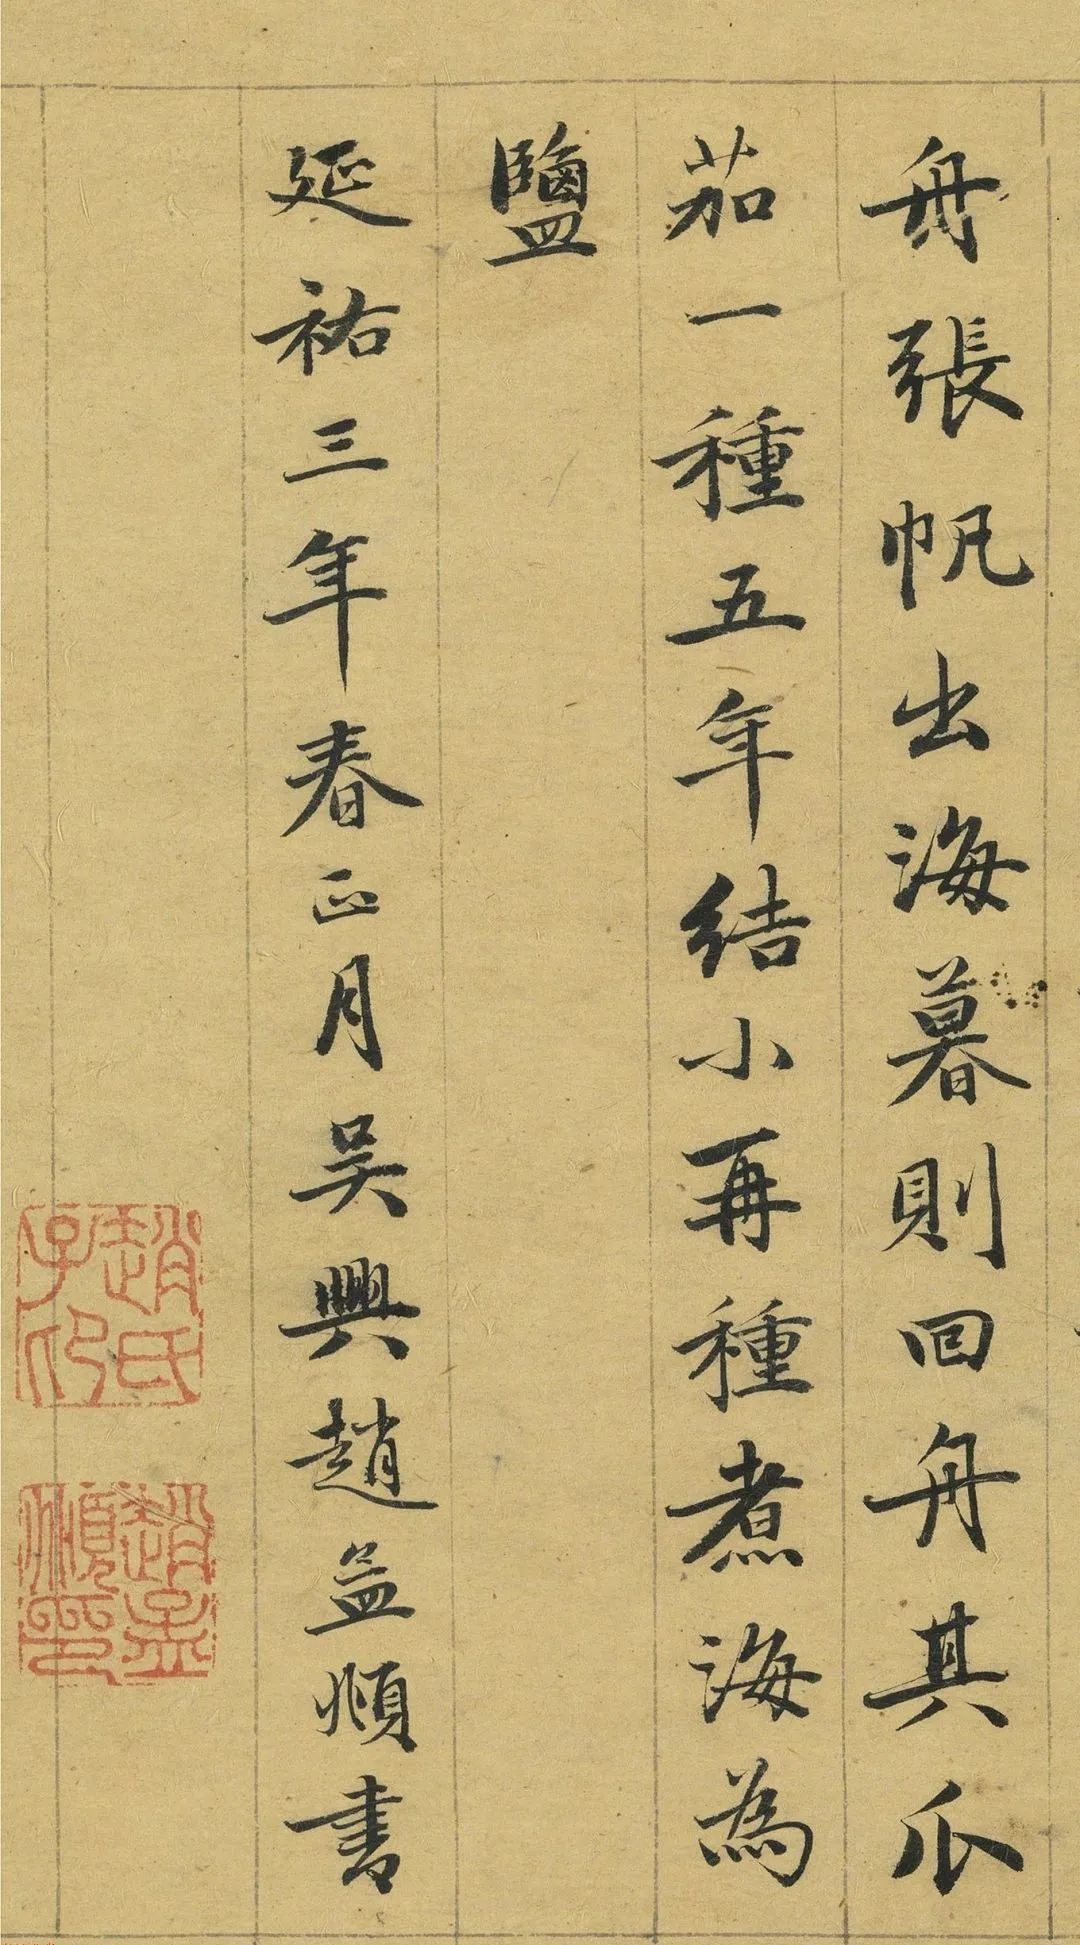 舟張帆出海暮則回舟其瓜
茄一種五年結小再種煮海為
鹽
延祐三年春正月吳興趙孟頫書
趙氏子印
趙孟頫印